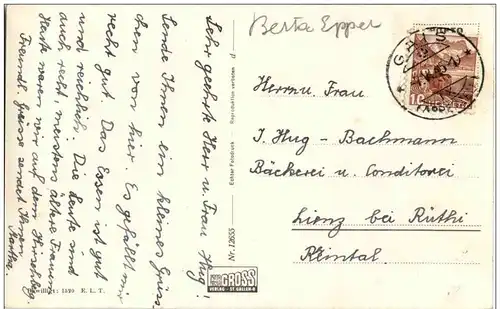 Sehr geehrte Herr u. Frau Hug!
Sende Ihnen ein kleines Grüss-
chen von hier. Es gefällt mir
recht gut. Das Essen ist gut
und reichlich. Die Leute sind
auch recht, meistens ältere Frauen
Heute waren wir auf dem
Freundl. Grüsse sendet Ihnen
Martha.
Bewilligt: 1539 E. L. T.
Echter Fotodruck
Reproduktion verboten
Nr. 12655
GROSS
VERLAG - ST. GALLEN
Berta Epper
Herrn u. Frau
J. Hug - Bachmann
Bäckerei u. Conditorei
Lienz bei Rüthi
Rheintal
10